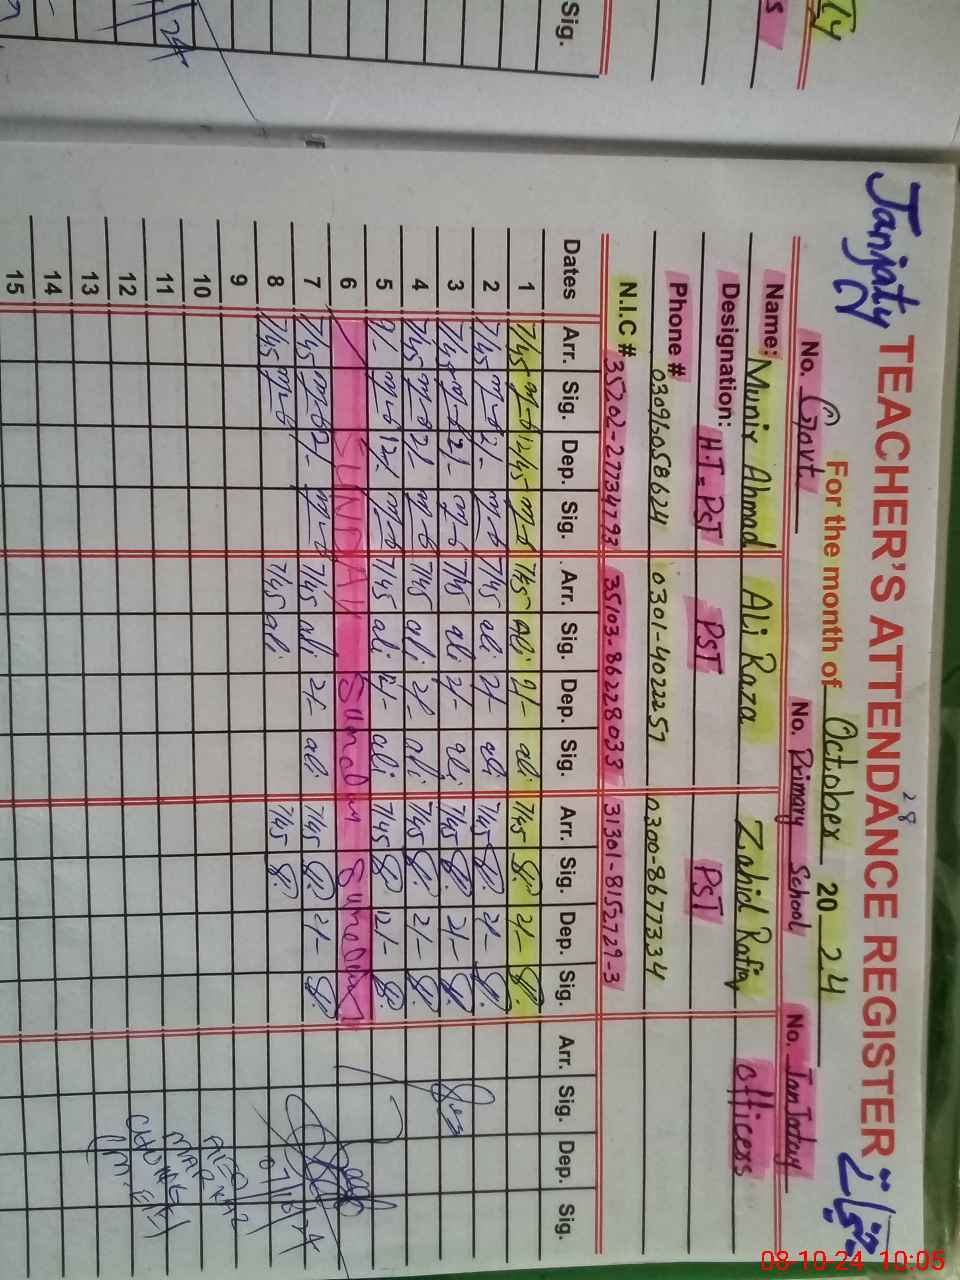 Janjaty
TEACHER'S ATTENDANCE REGISTER
28
For the month of October 20 24
No. Govt. No. Primary School No. JanJatey
Name: Munir Ahmad Ali Raza Zahid Rafiq Officers
Designation: H.T-PST PST PST
Phone # 0309-6058624 0301-4022257 0300-8677334
N.I.C # 35202-2773479-3 35103-8622803-3 31301-8152729-3
Dates Arr. Sig. Dep. Sig. Arr. Sig. Dep. Sig. Arr. Sig. Dep. Sig. Arr. Sig. Dep. Sig.
1 7/45 12/45 7/45 Ali 2/- ali 7/45 2/-
2 7/45 2/- 7/45 ali 2/- ali 7/45 2/-
3 7/45 2/- 7/45 ali 2/- ali 7/45 2/-
4 7/45 2/- 7/45 ali 2/- ali 7/45 2/-
5 12/- 7/45 ali 12/- ali 7/45 12/-
6 SUNDAY Sunday Sunday
7 7/45 2/- 7/45 ali 2/- ali 7/45 2/-
8 7/45 7/45 ali 7/45
9
10 AEO
11 MARKAZ
12
13
14
15
Sig.
24
08-10-24 10:05